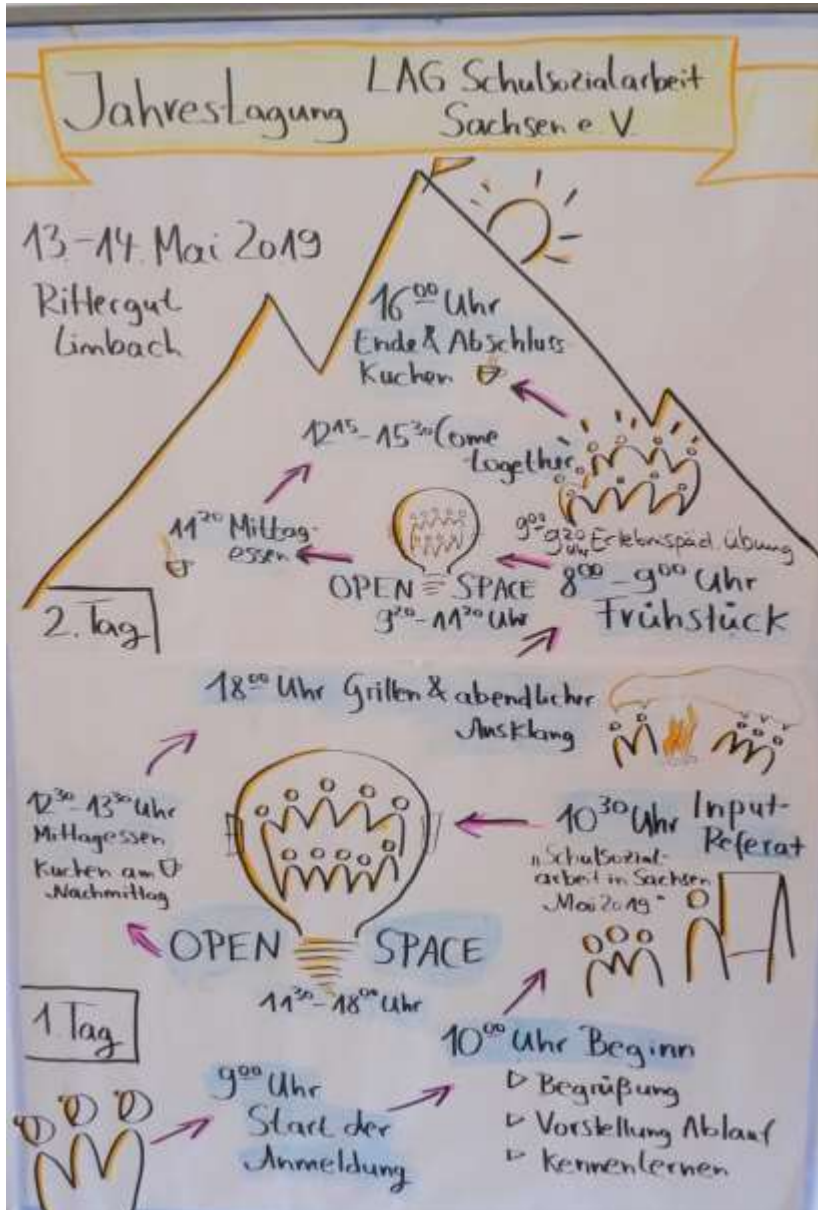 Jahrestagung
LAG Schulsozialarbeit
Sachsen e V.
13.-14. Mai 2019
Rittergut
Limbach
16⁰⁰ Uhr
Ende & Abschluss
Kuchen
12¹⁵-15³⁰ Come
-together
11²⁰ Mittag-
essen
9⁰⁰-9²⁰ Uhr Erlebnispäd. Übung
OPEN SPACE
9²⁰-11²⁰ Uhr
8⁰⁰-9⁰⁰ Uhr
Frühstück
2. Tag
18⁰⁰ Uhr Grillen & abendlicher
Ausklang
12³⁰-13³⁰ Uhr
Mittagessen
Kuchen am
Nachmittag
10³⁰ Uhr Input-
Referat
"Schulsozial-
arbeit in Sachsen
Mai 2019"
OPEN SPACE
11³⁰-18⁰⁰ Uhr
1. Tag
9⁰⁰ Uhr
Start der
Anmeldung
10⁰⁰ Uhr Beginn
▷ Begrüßung
▷ Vorstellung Ablauf
▷ Kennenlernen